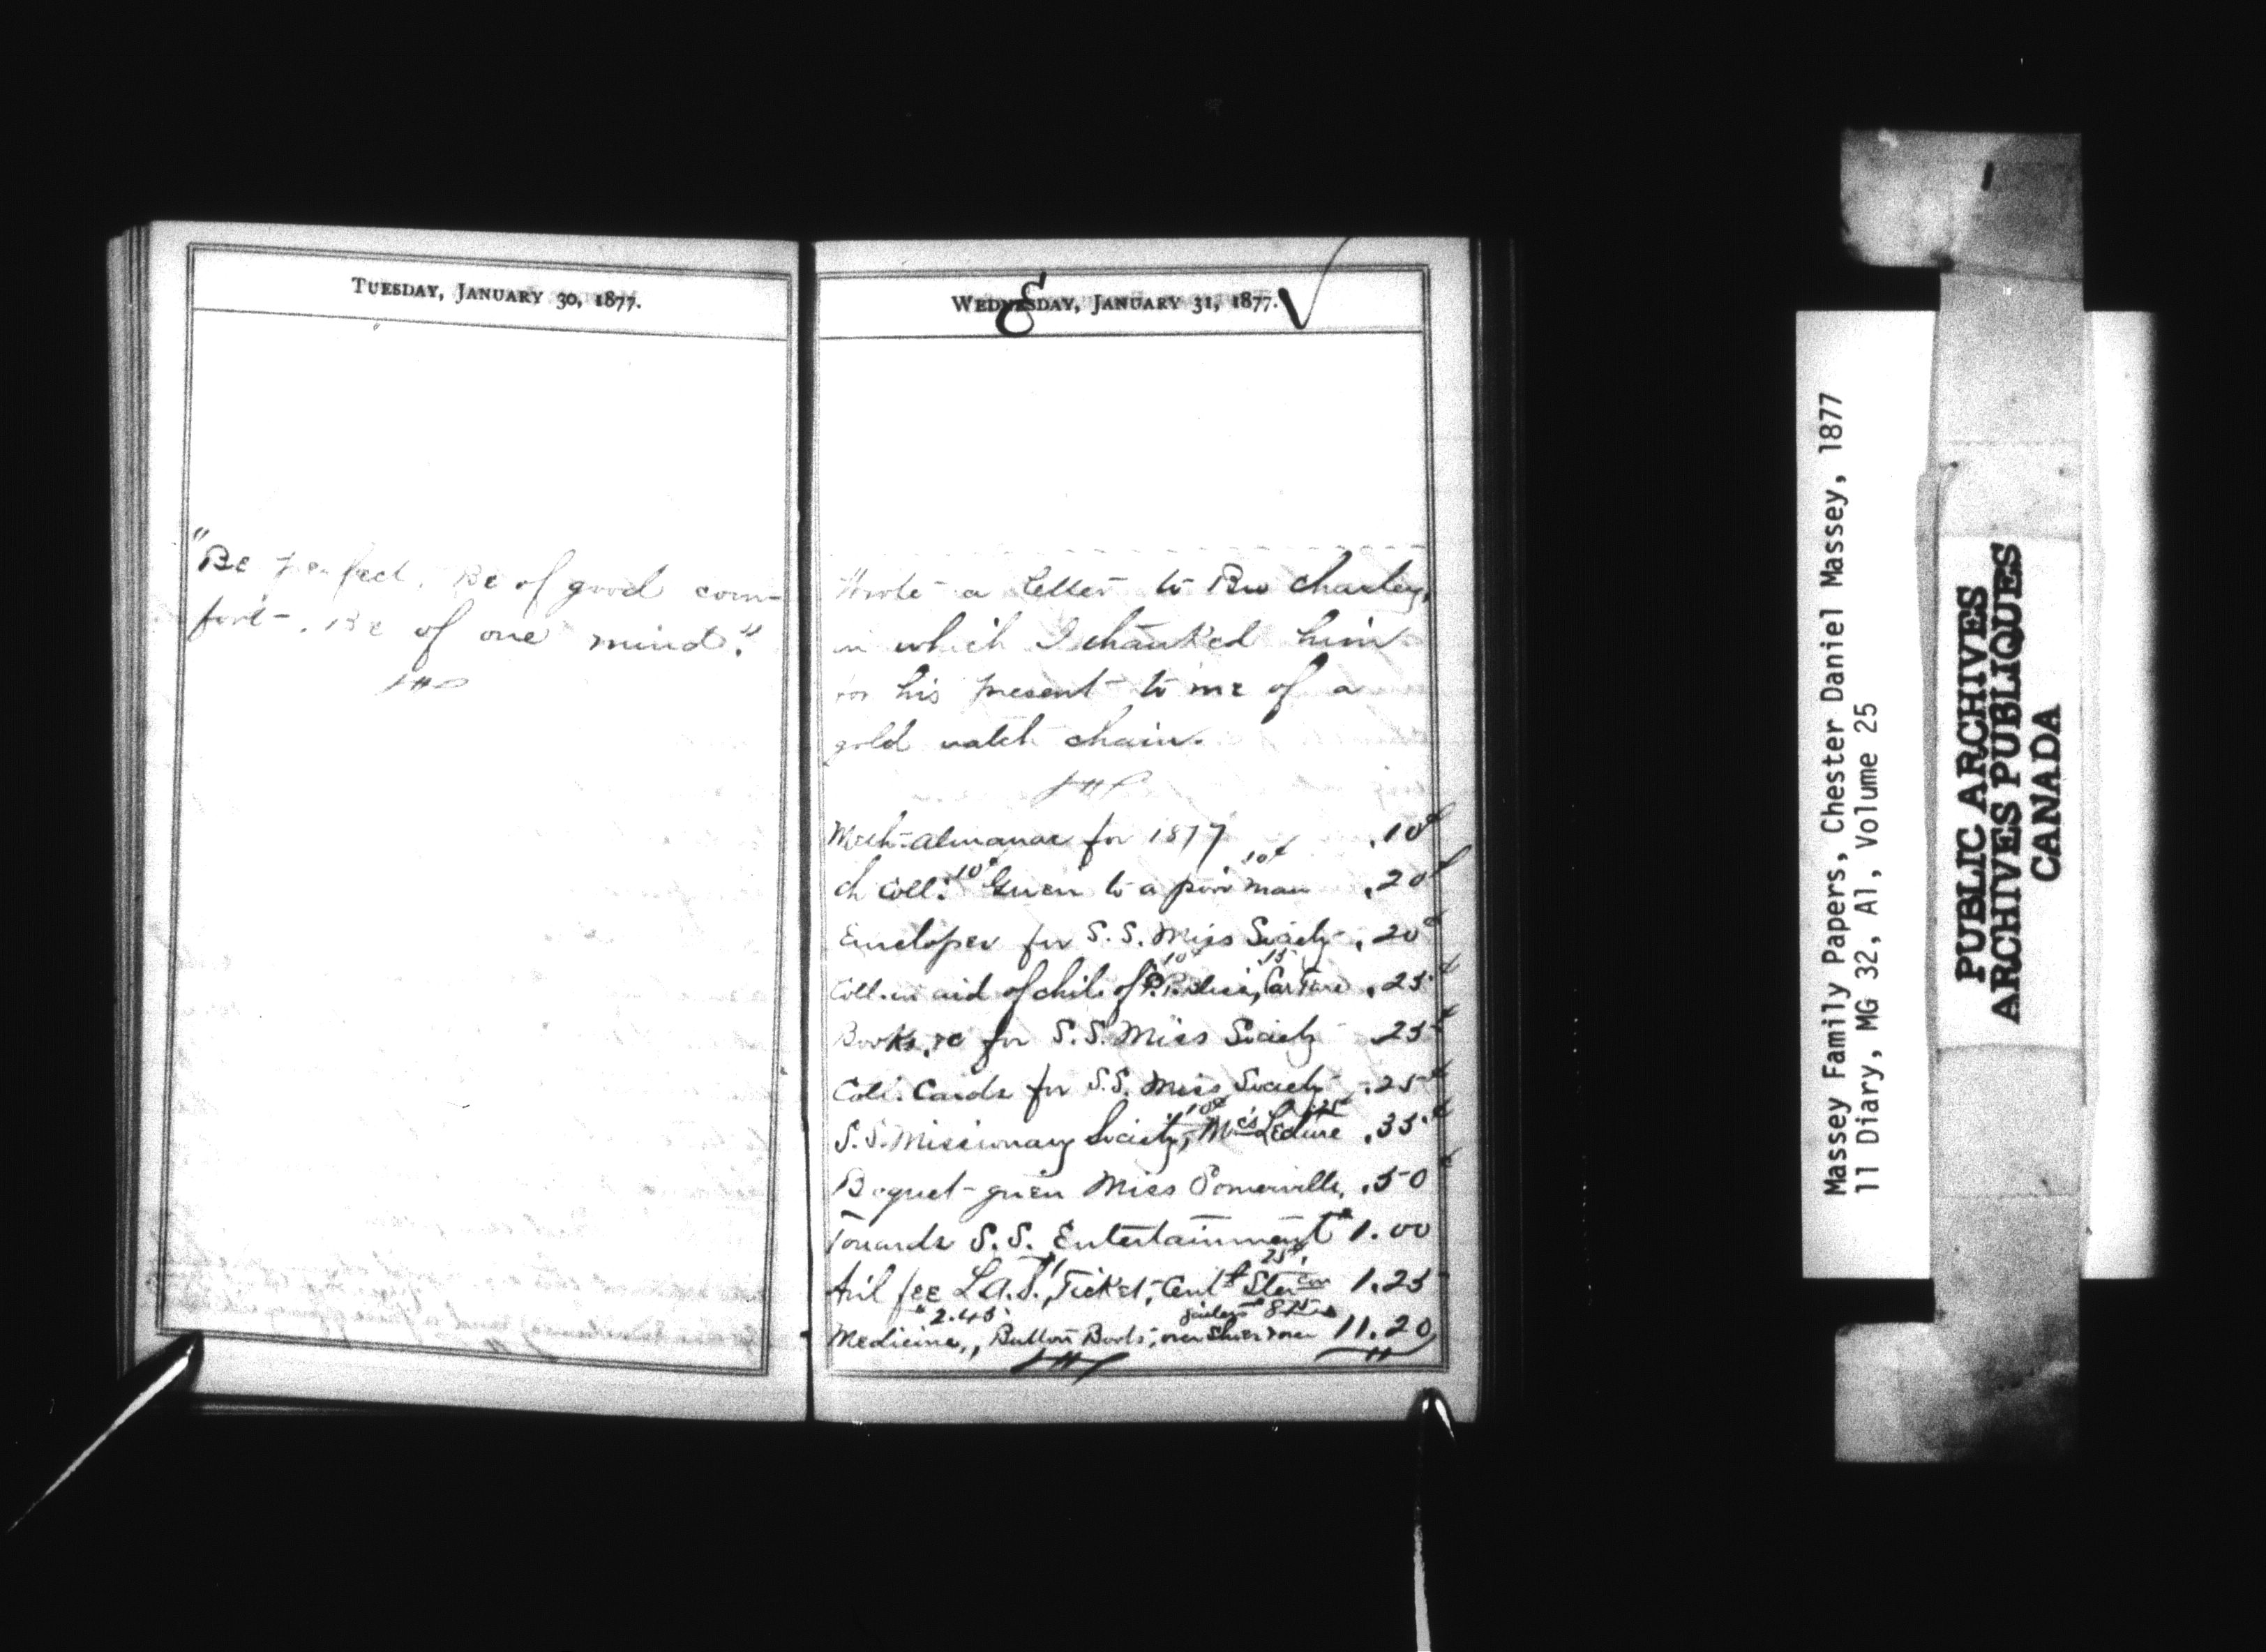 TUESDAY, JANUARY 30, 1877.
"Be perfect. Be of good com-
fort. Be of one mind."
WEDNESDAY, JANUARY 31, 1877.
Wrote a letter to Bro Charley,
in which I thanked him
for his present to me of a
gold watch chain.
Meth. Almanac for 1877 .10¢
Ch Coll. 10¢ Given to a poor man 10¢ .20¢
Envelopes for S.S. Miss Society .20¢
Coll. in aid of chil. of P. 10¢ Car Fare 15 .25¢
Books, &c for S.S. Miss Society .25¢
Coll. Cards for S.S. Miss Society .25¢
S.S. Missionary Society, 10¢ Lecture 25¢ .35¢
Boquet given Miss Somerville, .50¢
Towards S.S. Entertainment 1.00
fee L.A.S., Ticket, 25¢ 1.25
Medicine, 2.45 Button Boots, over shoes 11.20
Massey Family Papers, Chester Daniel Massey, 1877
11 Diary, MG 32, A1, Volume 25
PUBLIC ARCHIVES
ARCHIVES PUBLIQUES
CANADA